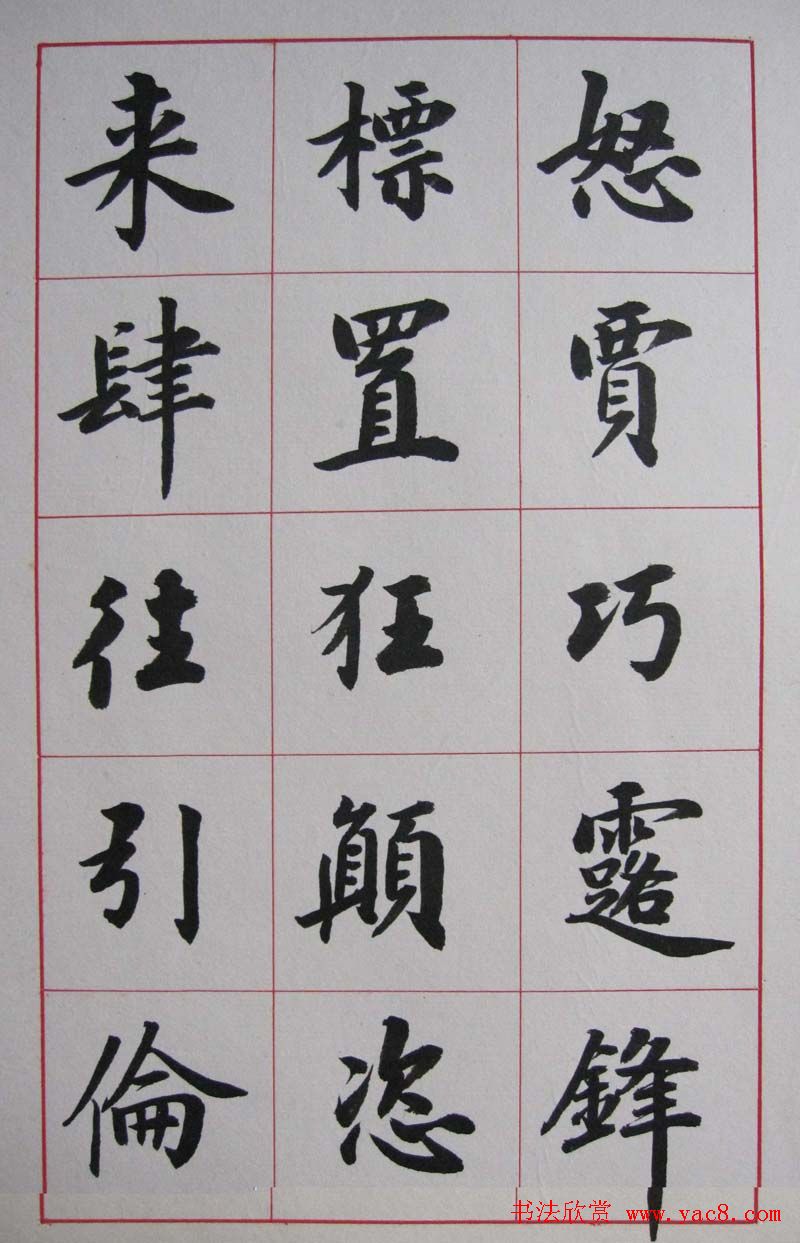 怒賈巧露鋒
標置狂顛恣
来肆往引倫
书法欣赏 www.yac8.com